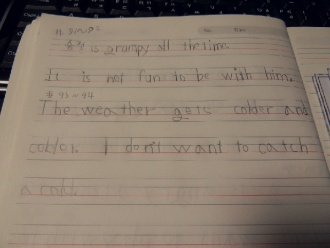 is grumpy all the time.
It is not fun to be with him.
The weather gets colder and
colder. I don't want to catch
a cold.